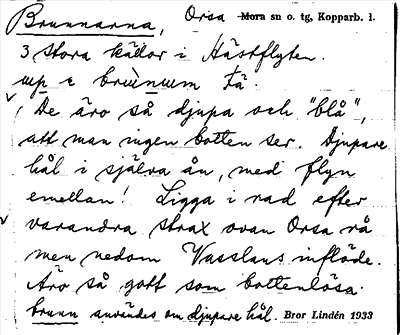 Brunnarna, Orsa Mora sn o. tg, Kopparb. l.
3 stora källor i Hästflyten.
up ε brùnnum tä.
De äro så djupa och "blå",
att man ingen botten ser. Djupare
hål i själva ån, med flyn
emellan! Ligga i rad efter
varandra strax ovan Orsa rå
men nedom Vasslans inflöde.
Äro så gott som bottenlösa.
brunn användes om djupare hål. Bror Lindén 1933